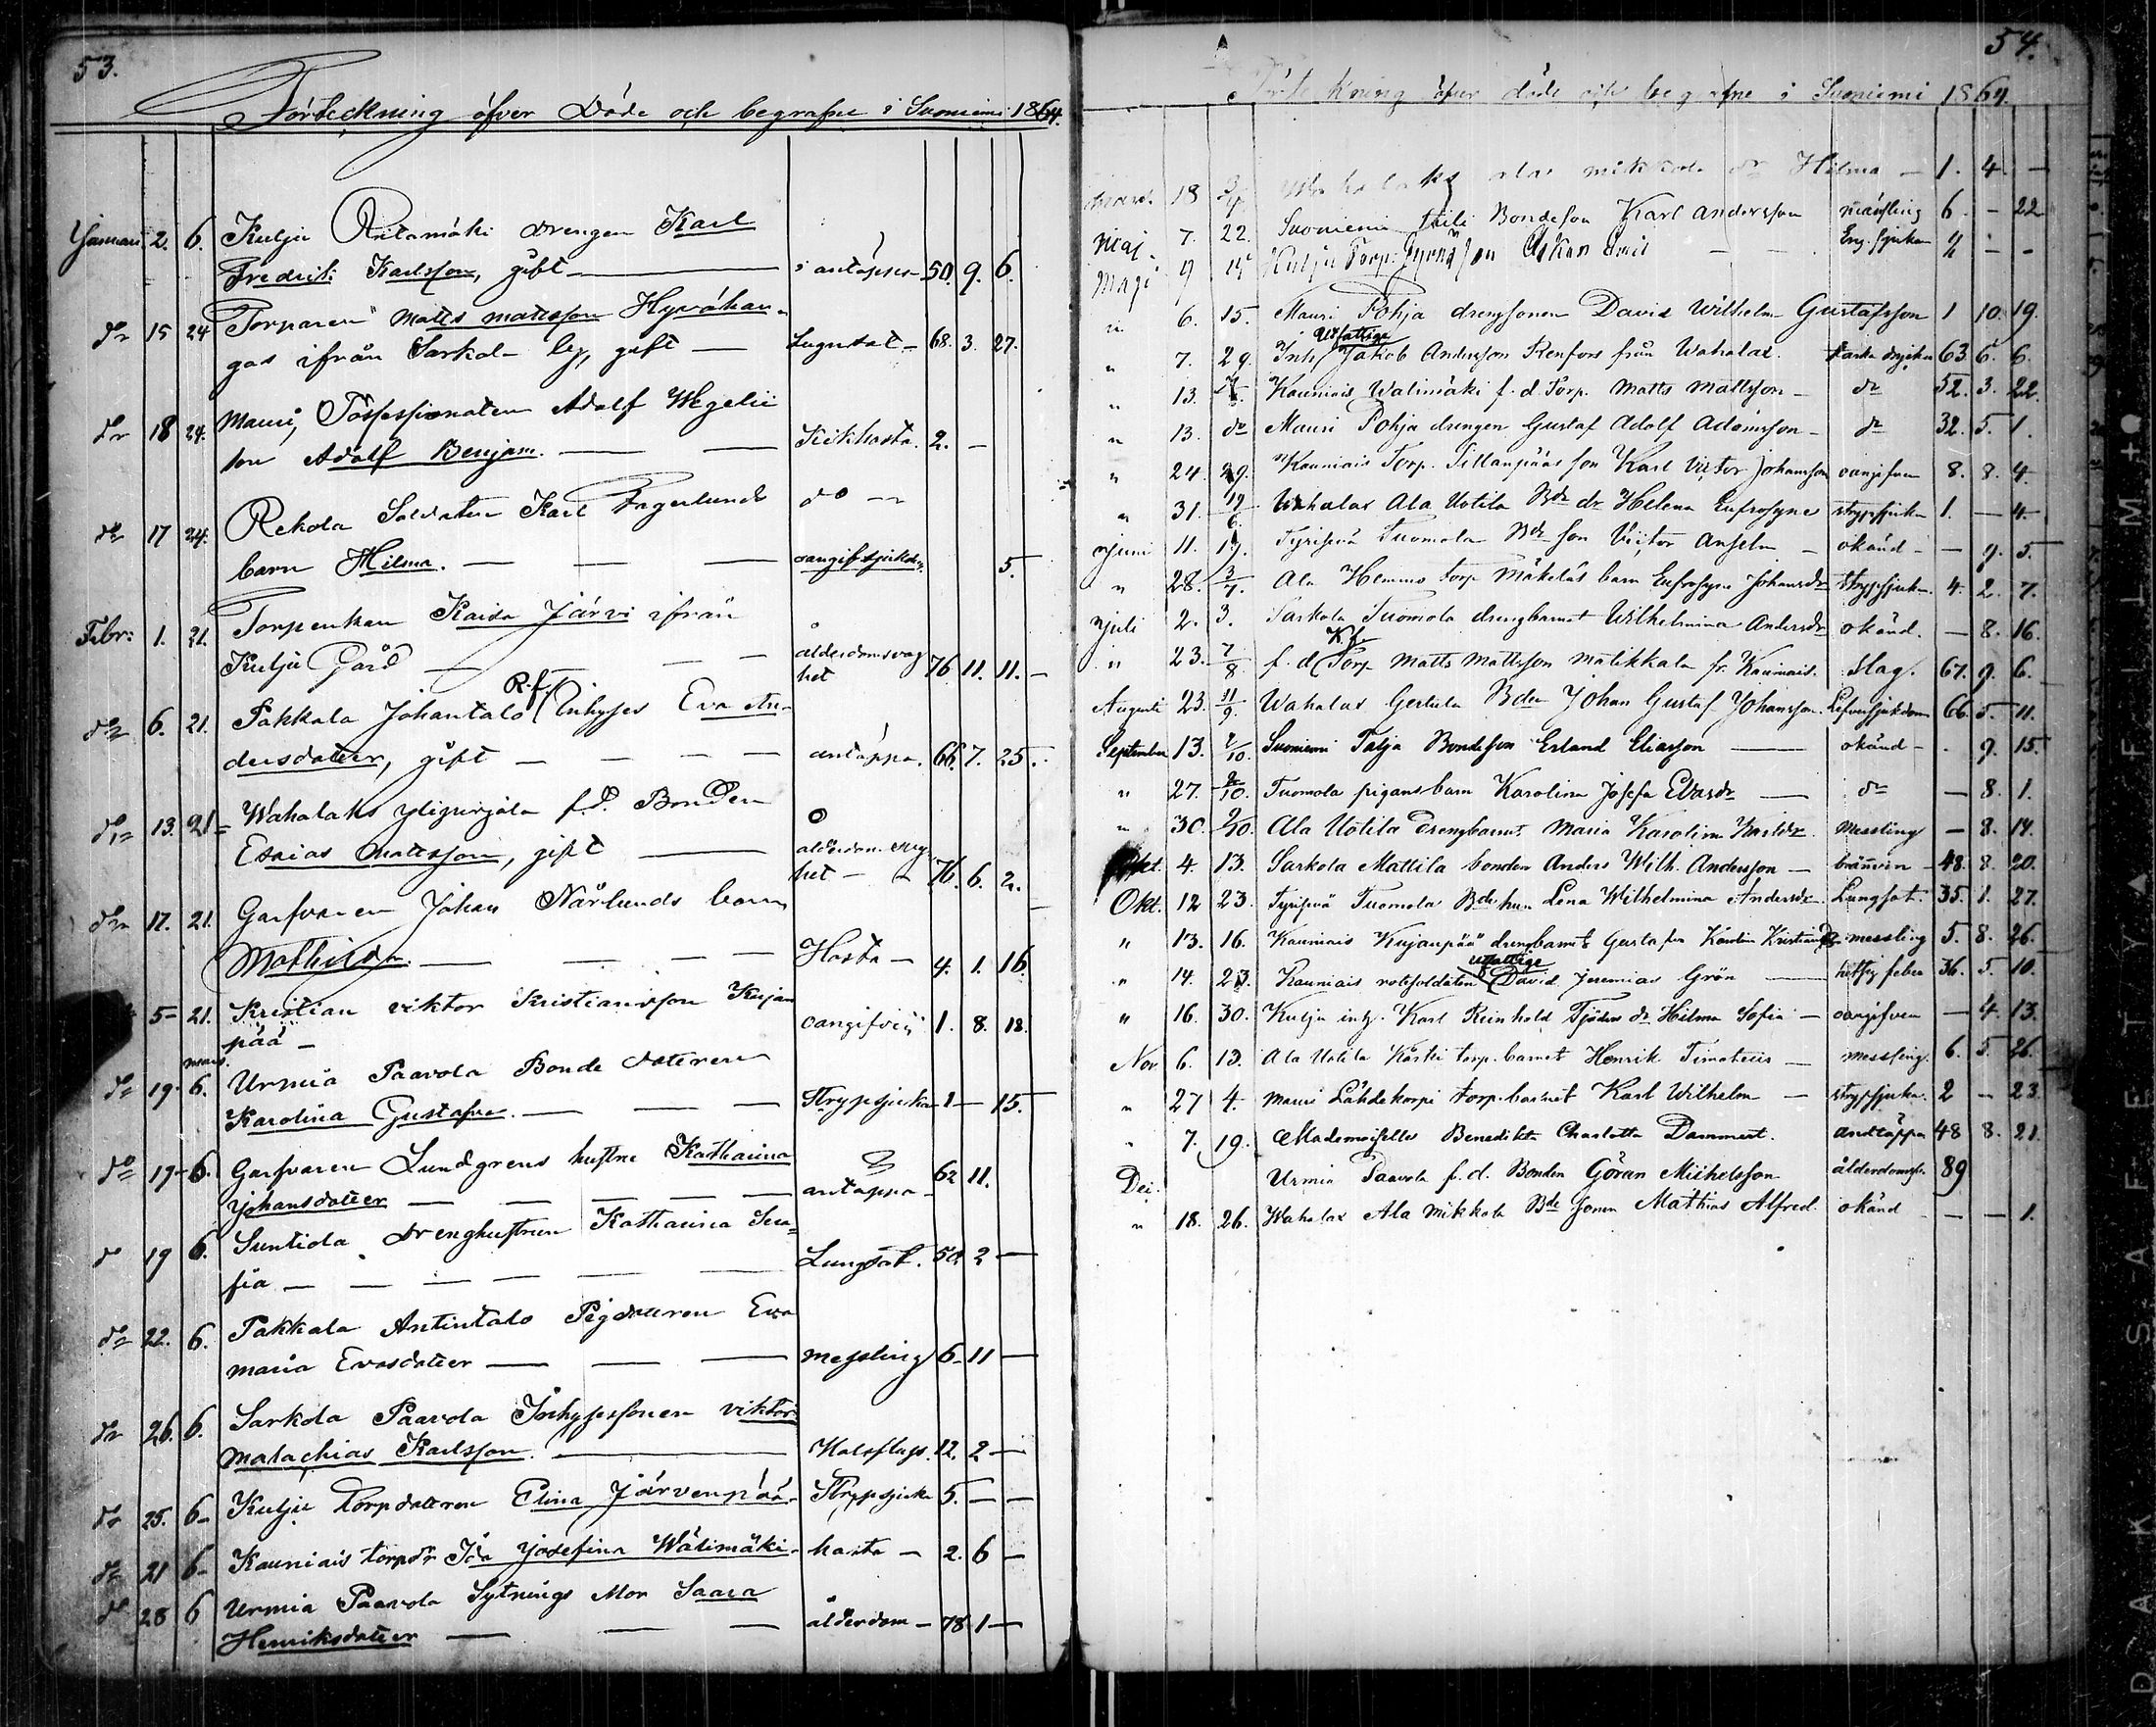 53.
Förteckning öfver Döde och begrafne i Suoniemi 1864.
Januari 2. 6. Kulju Rintamäki drengen Karl
Fredrik Karlsson, gift — i antäppa 50. 9. 6.
do 15 24 Torparen Matts Mattsson Hyvähan-
gas ifrån Sarkola by, gift — Lugnsot — 68. 3. 27.
do 18 24. Mauri, Possessionaten Adolf Wegelii
son Adolf Benjam. — — Kikhosta. 2. —
do 17 24. Rekola Soldaten Karl Fagerlunds do —
barn Hilma. — — — oangif. sjukdom. 5.
Febr: 1. 21. Torpenkan Kaisa Järvi ifrån
Kulju Gård — — — ålderdomsvag
het 76. 11. 11. —
do 6. 21. Pakkala Johantalo R.f. Inhyses Eva An-
dersdotter, gift — — — antäppa. 66. 7. 25.
do 13. 21 Wahalaks ylipirjola f.d. Bonden
Esaias Mattsson, gift — ålderdoms svag
het — 76. 6. 2.
do 17. 21. Garfvaren Johan Nårlunds barn
Mathilda. — — — Hosta — 4. 1. 16.
5 21. Kristian Viktor Kristiansson Kujan
pää — oangifven 1. 8. 18.
mars
do 19. 6. Urmia Paavola Bonde dotteren
Karolina Gustafva. — — — Strypsjuka 1 — 15.
do 19 6. Garfvaren Lundgrens hustru Katharina
Johansdotter — — — antäppa — 62 11.
do 19 6. Suntiola Drenghustrun Katharina So-
fia — — — Lungsot. 50 2 —
do 22. 6. Pakkala Antintalo Pigdotteren Eva
Maria Evasdotter — — — messling 6 11 —
do 26. 6. Sarkola Paavola Inhysessonen Viktor
Malachias Karlsson. — Halsflags. 12. 2 —
do 25. 6 Kulju Torpdotteren Elina Järvenpää. Strypsjuka 5. — —
do 21 6 Kauniais torpdr Ida Josefina Wälimäki. hosta — 2. 6 —
do 28 6 Urmia Paavola Sytnings Mor Saara
Henriksdotter — — — ålderdom — 78 1 —
54.
Förteckning öfver döde och begrafne i Suoniemi 1864.
Mars. 18 Wahalaks alas Mikkola dr Hilma — 1. 4 —
Maj. 7. 22. Suoniemi Bondeson Karl Andersson mässling 6. — 22
Maji 9 15 Kulju Torp. son Oskar Emil — — Eng. sjukan 4 — —
" 6. 15. Mauri Pohja drengsonen David Wilhelm Gustafsson 1 10. 19.
Utfattige
" 7. 29. Inh. Jakob Andersson Renfors från Wahalax. 63. 6. 6.
" 13. Kauniais Walimäki f.d. Torp. Matts Mattsson — do 52. 3. 22.
" 13. do Mauri Pohja drengen Gustaf Adolf Adamsson — do 32. 5. 1.
" 24. 29. Kauniais Torp. Sillanpääs son Karl Victor Johansson oangifven 8. 8. 4.
" 31. 19/6. Wahalax Ala Uotila Bdr dr Helena Eufrosyne strypsjuka 1. — 4.
Njuni 11. 19. Tyrisevä Tuomola Bdr son Victor Anselm — okänd — — 9. 5.
" 28. 3/7. Ala Hemmo torp Mäkeläs barn Eufrosyne Johansdr strypsjuka 4. 2. 7.
Njuli 2. 3. Sarkola Tuomola drengbarnet Wilhelmina Andersdr okänd. — 8. 16.
" 23. 7/8 f.d. K.f. Torp Matts Mattsson Matikkala fr. Kauniais. Slag. 67. 9. 6.
Augusti 23. 11/9. Wahalax Gertula Bden Johan Gustaf Johansson. Lefversjukdom 66. 5. 11.
September 13. 2/10. Suoniemi Talja Bondeson Erland Eliasson — okänd — 9. 15.
" 27. 2/10. Tuomola pigans barn Karolina Josefa Evasdr — do — 8. 1.
" 30. 2/10. Ala Uotila Drengbarnet Maria Karolina Karlsdr messling — 8. 14.
Okt. 4. 13. Sarkola Mattila bonden Anders Wilh. Andersson — brännvin — 48. 8. 20.
Okt. 12 23. Tyrisevä Tuomola Bde hun Lena Wilhelmina Andersdr. Lungsot. 35. 1. 27.
" 13. 16. Kauniais Kujanpää drengbarnet Gustafva Karolina Kristiansdr messling 5. 8. 26.
utfattige
" 14. 23. Kauniais rotesoldaten David Jeremias Grön — hetsig feber 36. 5. 10.
" 16. 30. Kulju inh. Karl Reinhold Fjäders dr Hilma Sofia — oangifven — 4. 13.
Nov 6. 13. Ala Uotila Koski torp. barnet Henrik Timoteus — messling. 6. 5. 26.
" 27 4. Mauri Lähdekorpi torp. barnet Karl Wilhelm — strypsjuka. 2 — 23.
" 7. 19. Mademoiselle Benedikta Charlotta Dammert. andtäppa 48 8. 21.
Dei. Urmia Paavola f.d. Bonden Göran Michelsson ålderdoms. 89
" 18. 26. Wahalax Ala Mikkola Bde sonen Mathias Alfred. okänd — — 1.